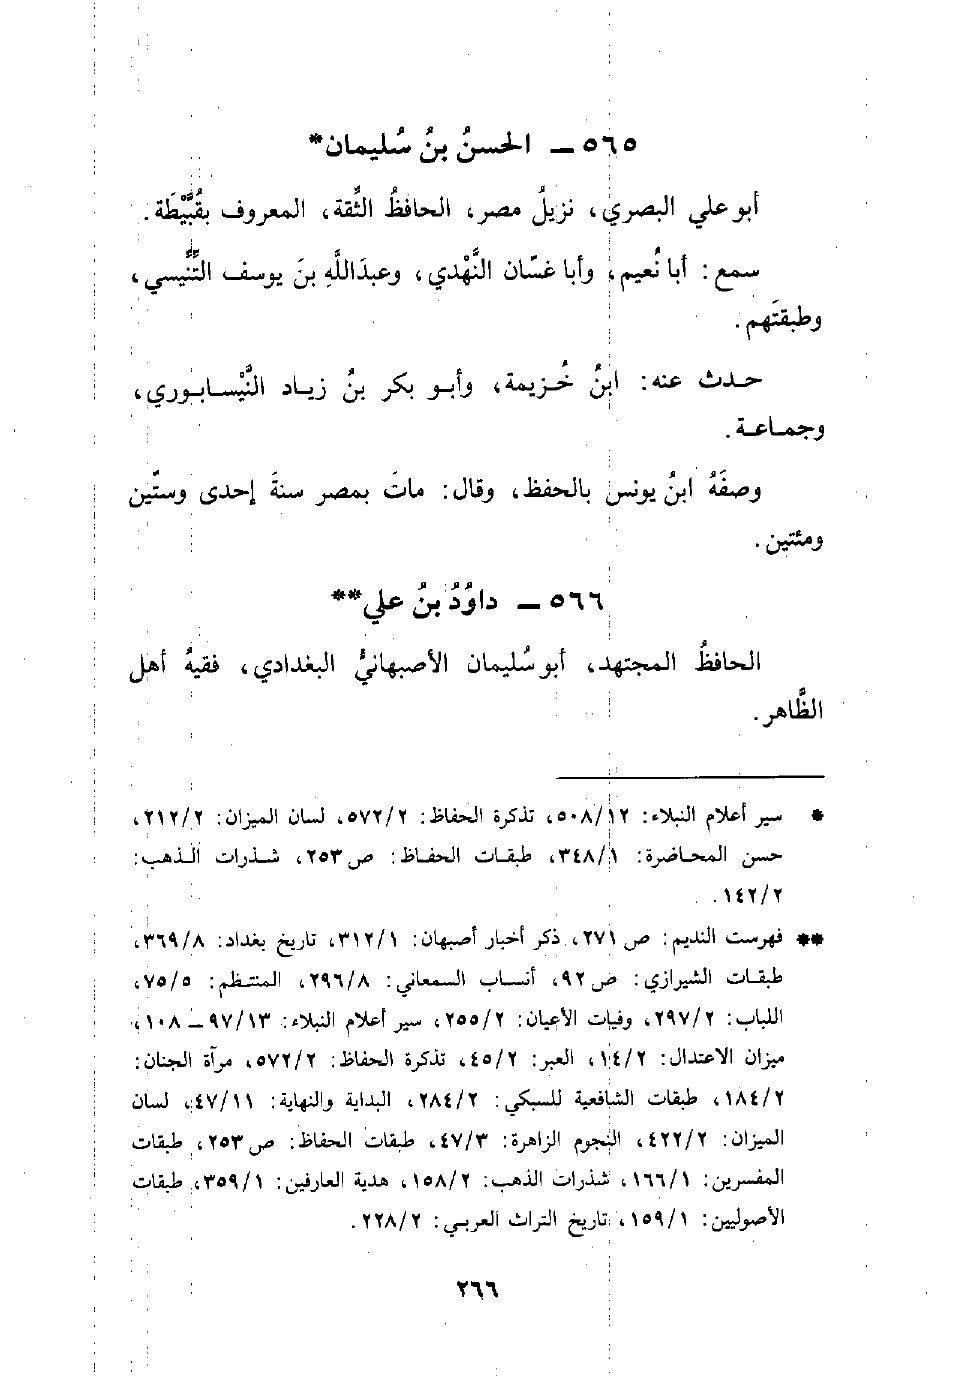 ٥٦٥ ـ الحسنُ بنُ سُليمان*
أبو علي البصري، نزيلُ مصر، الحافظُ الثِّقة، المعروف بقُبَّيْطَة.
سمع: أبا نُعيم، وأبا غسّان النَّهْدي، وعبدَاللَّهِ بنَ يوسف التِّنِّيسي،
وطبقتَهم.
حدث عنه: ابنُ خُزيمة، وأبو بكر بنُ زياد النَّيْسابوري،
وجماعة.
وصفَهُ ابنُ يونس بالحفظ، وقال: ماتَ بمصر سنةَ إحدى وستّين
ومئتين.
٥٦٦ ـ داوُدُ بنُ علي**
الحافظُ المجتهد، أبو سُليمان الأصبهانيُّ البغدادي، فقيهُ أهل
الظَّاهر.
* سير أعلام النبلاء: ٥٠٨/١٢، تذكرة الحفاظ: ٥٧٢/٢، لسان الميزان: ٢١٢/٢،
حسن المحاضرة: ٣٤٨/١، طبقات الحفاظ: ص٢٥٣، شذرات الذهب:
١٤٢/٢.
** فهرست النديم: ص٢٧١، ذكر أخبار أصبهان: ٣١٢/١، تاريخ بغداد: ٣٦٩/٨،
طبقات الشيرازي: ص٩٢، أنساب السمعاني: ٢٩٦/٨، المنتظم: ٧٥/٥،
اللباب: ٢٩٧/٢، وفيات الأعيان: ٢٥٥/٢، سير أعلام النبلاء: ٩٧/١٣ ـ ١٠٨،
ميزان الاعتدال: ١٤/٢، العبر: ٤٥/٢، تذكرة الحفاظ: ٥٧٢/٢، مرآة الجنان:
١٨٤/٢، طبقات الشافعية للسبكي: ٢٨٤/٢، البداية والنهاية: ٤٧/١١، لسان
الميزان: ٤٢٢/٢، النجوم الزاهرة: ٤٧/٣، طبقات الحفاظ: ص٢٥٣، طبقات
المفسرين: ١٦٦/١، شذرات الذهب: ١٥٨/٢، هدية العارفين: ٣٥٩/١، طبقات
الأصوليين: ١٥٩/١، تاريخ التراث العربي: ٢٢٨/٢.
٢٦٦